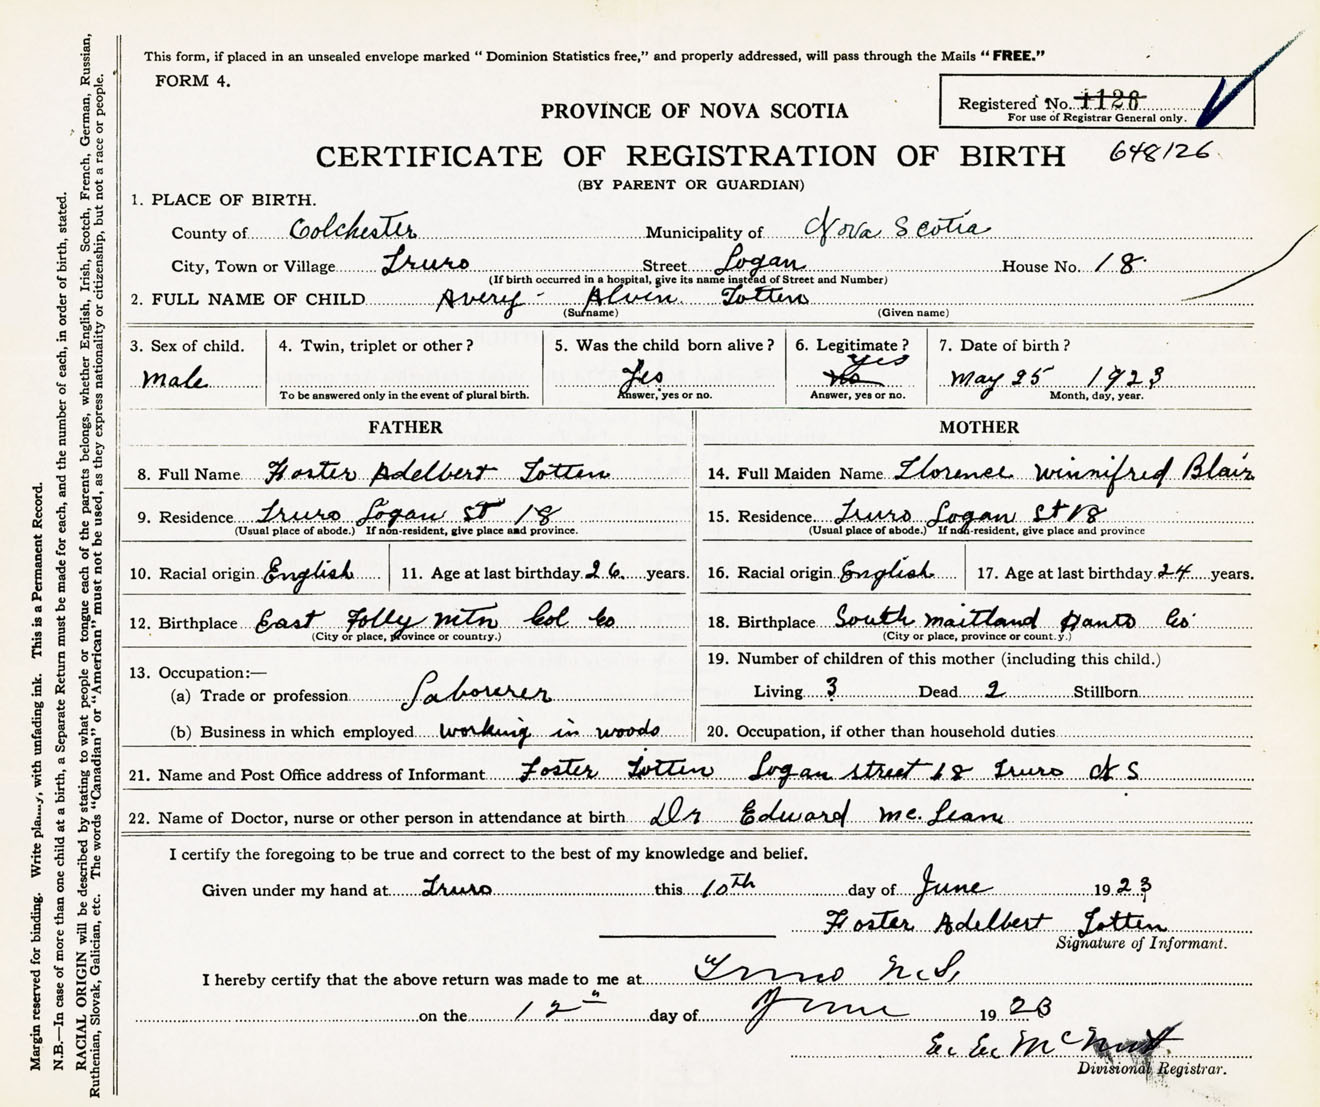 This form, if placed in an unsealed envelope marked “ Dominion Statistics free,” and properly addressed, will pass through the Mails “ FREE.”
FORM 4.
Registered No. 1126
For use of Registrar General only.
PROVINCE OF NOVA SCOTIA
CERTIFICATE OF REGISTRATION OF BIRTH 648126
(BY PARENT OR GUARDIAN)
1. PLACE OF BIRTH.
County of Colchester Municipality of Nova Scotia
City, Town or Village Truro Street Logan House No. 18
(If birth occurred in a hospital, give its name instead of Street and Number)
2. FULL NAME OF CHILD Avery - Alvin Totten
(Surname) (Given name)
3. Sex of child. 4. Twin, triplet or other ? 5. Was the child born alive ? 6. Legitimate ? 7. Date of birth ?
yes
male Yes no May 25 1923
To be answered only in the event of plural birth. Answer, yes or no. Answer, yes or no. Month, day, year.
FATHER MOTHER
8. Full Name Foster Adelbert Totten 14. Full Maiden Name Florence Winnifred Blair
9. Residence Truro Logan St 18 15. Residence Truro Logan St 18
(Usual place of abode.) If non-resident, give place and province. (Usual place of abode.) If non-resident, give place and province
10. Racial origin English 11. Age at last birthday 26 years. 16. Racial origin English 17. Age at last birthday 24 years.
12. Birthplace East Folly Mtn Col Co 18. Birthplace South Maitland Hants Co
(City or place, province or country.) (City or place, province or count.y.)
13. Occupation:— 19. Number of children of this mother (including this child.)
(a) Trade or profession Laborerer Living 3 Dead 2 Stillborn
(b) Business in which employed working in woods 20. Occupation, if other than household duties
21. Name and Post Office address of Informant Foster Totten Logan street 18 Truro N S
22. Name of Doctor, nurse or other person in attendance at birth Dr Edward Mc.Lean
I certify the foregoing to be true and correct to the best of my knowledge and belief.
Given under my hand at Truro this 10th day of June 1923
Foster Adelbert Totten
Signature of Informant.
I hereby certify that the above return was made to me at Truro N.S.
on the 12" day of June 1923
McNutt
Divisional Registrar.
Margin reserved for binding. Write plainly, with unfading ink. This is a Permanent Record.
N.B.—In case of more than one child at a birth, a Separate Return must be made for each, and the number of each, in order of birth, stated.
RACIAL ORIGIN will be described by stating to what people or tongue each of the parents belongs, whether English, Irish, Scotch, French, German, Russian,
Ruthenian, Slovak, Galician, etc. The words “Canadian” or “American” must not be used, as they express nationality or citizenship, but not a race or people.